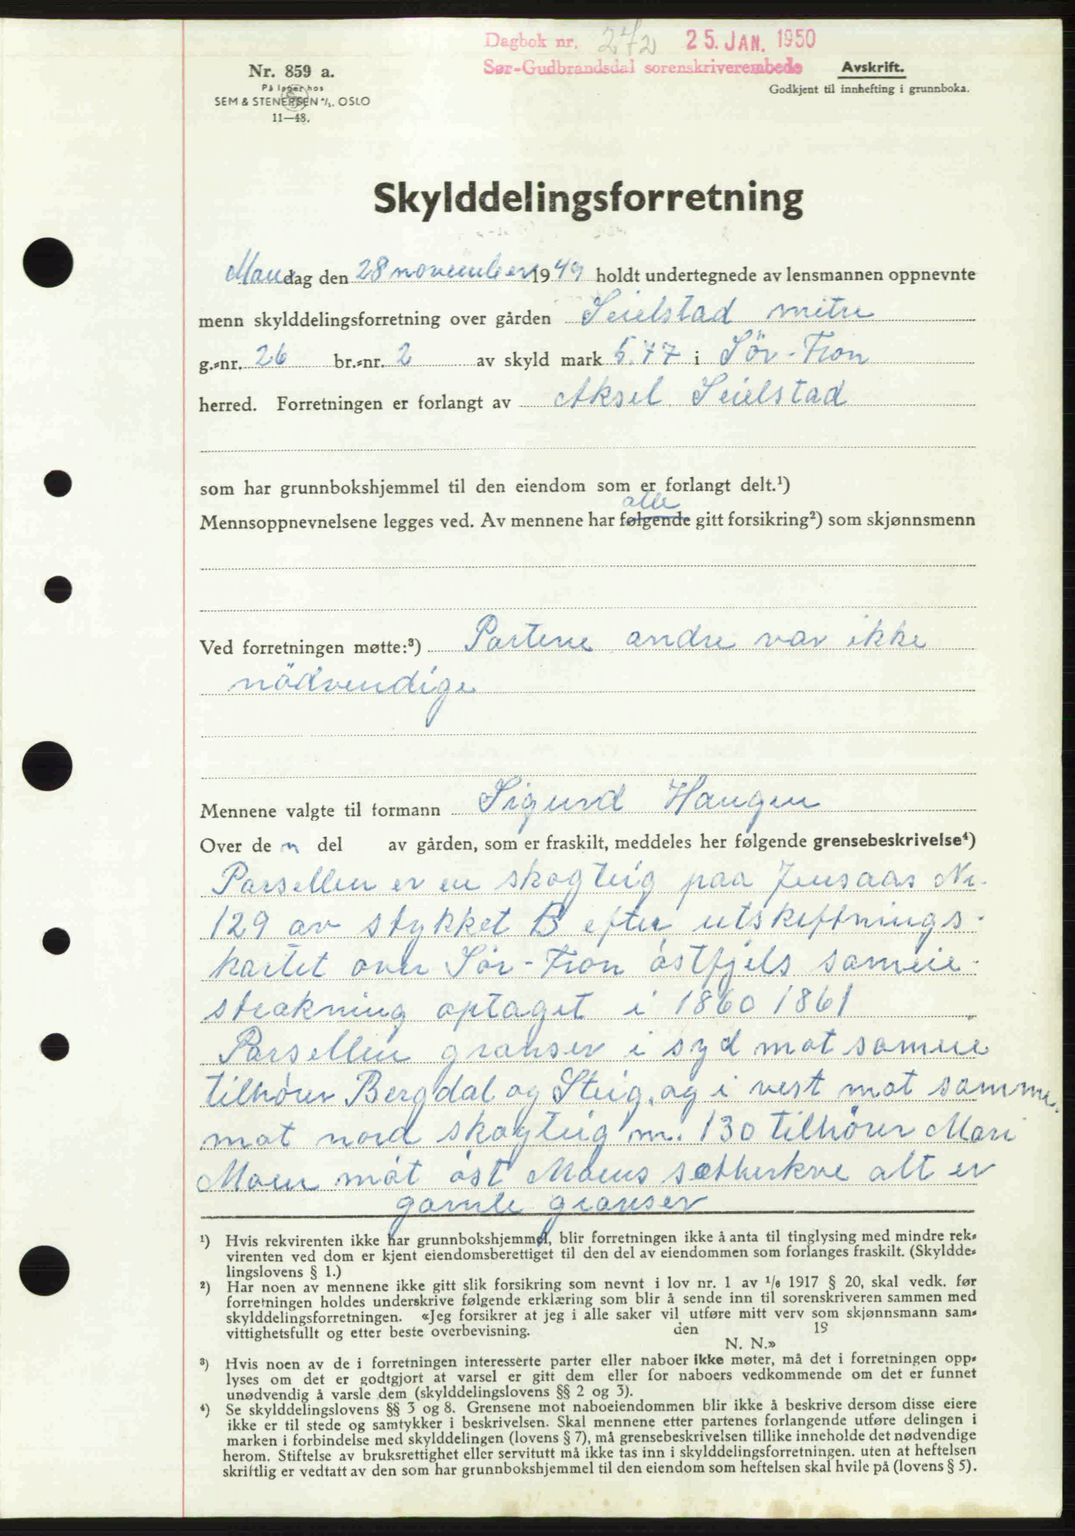 Dagbok nr. 272 25. JAN. 1950
Sør-Gudbrandsdal sorenskriverembede
Nr. 859 a.
På lager hos
SEM & STENERSEN A/S. OSLO
11—48.
Avskrift.
Godkjent til innhefting i grunnboka.
Skylddelingsforretning
Mandag den 28 november 1949 holdt undertegnede av lensmannen oppnevnte
menn skylddelingsforretning over gården Seielstad mitre
g.-nr. 26 br.-nr. 2 av skyld mark 5.77 i Sör-Fron
herred. Forretningen er forlangt av Aksel Seielstad
som har grunnbokshjemmel til den eiendom som er forlangt delt.¹)
alle
Mennsoppnevnelsene legges ved. Av mennene har følgende gitt forsikring²) som skjønnsmenn
Ved forretningen møtte:³) Partene andre var ikke
nödvendige
Mennene valgte til formann Sigurd Haugen
Over de n del av gården, som er fraskilt, meddeles her følgende grensebeskrivelse⁴)
Parsellen er en skogteig paa Jensaas Nr.
129 av stykket B efter utskiftnings-
kartet over Sör-Fron östfjels sameie-
strækning optaget i 1860 1861
Parsellen granser i syd mot sameie
tilhörer Bergdal og Steig, og i vest mot samme,
mot nord skogteig nr. 130 tilhörer Mari
Moen mot öst Moens sætherkve alt er
gamle granser
¹) Hvis rekvirenten ikke har grunnbokshjemmel, blir forretningen ikke å anta til tinglysing med mindre rek-
virenten ved dom er kjent eiendomsberettiget til den del av eiendommen som forlanges fraskilt. (Skyldde-
lingslovens § 1.)
²) Har noen av mennene ikke gitt slik forsikring som nevnt i lov nr. 1 av 1/6 1917 § 20, skal vedk. før
forretningen holdes underskrive følgende erklæring som blir å sende inn til sorenskriveren sammen med
skylddelingsforretningen. «Jeg forsikrer at jeg i alle saker vil utføre mitt verv som skjønnsmann sam-
vittighetsfullt og etter beste overbevisning. den 19
N. N.»
³) Hvis noen av de i forretningen interesserte parter eller naboer ikke møter, må det i forretningen opp-
lyses om det er godtgjort at varsel er gitt dem eller for naboers vedkommende om det er funnet
unødvendig å varsle dem (skylddelingslovens §§ 2 og 3).
⁴) Se skylddelingslovens §§ 3 og 8. Grensene mot naboeiendommen blir ikke å beskrive dersom disse eiere
ikke er til stede og samtykker i beskrivelsen. Skal mennene etter partenes forlangende utføre delingen i
marken i forbindelse med skylddelingen (lovens § 7), må grensebeskrivelsen tillike inneholde det nødvendige
herom. Stiftelse av bruksrettighet eller servitutt må ikke tas inn i skylddelingsforretningen. uten at heftelsen
skriftlig er vedtatt av den som har grunnbokshjemmel til den eiendom som heftelsen skal hvile på (lovens § 5).